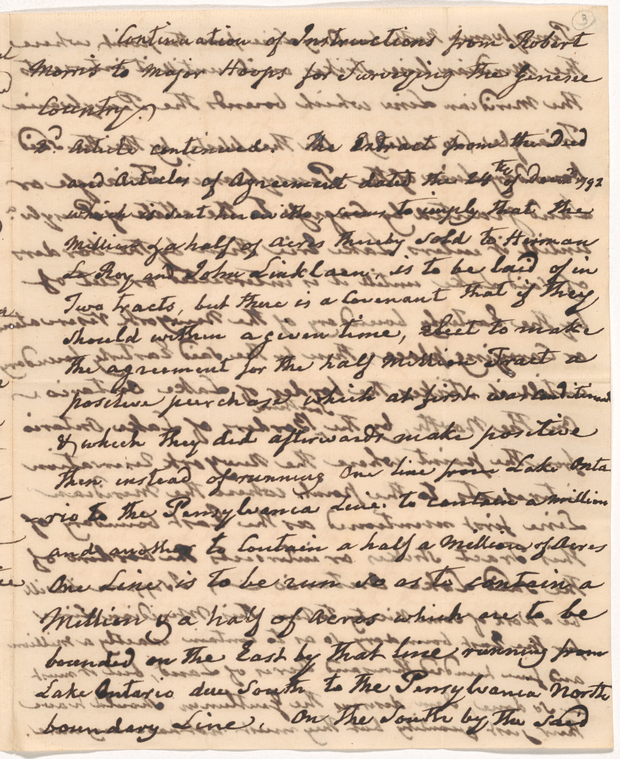 3
Continuation of Instructions from Robert
Morris to Major Hoops for Surveying the Genesee
Country.
2d. Article continued. The Extract from the Deed
and Articles of Agreement dated the 24th of Decemr 1792
which is sent herewith seems to imply that the
Million & a half of Acres thereby sold to Herman
Le Roy and John Linklaen. is to be laid of in
Two tracts, but there is a Covenant that if they
should within a given time, elect to make
the agreement for the half Million Tract a
positive purchase which at first was conditional
& which they did afterwards make positive
then instead of running One line from Lake Onta
rio to the Pensylvania Line. to contain a Million
and another to Contain a half a Million of Acres
One Line is to be run so as to contain a
Million & a half of Acres which are to be
bounded on the East by that line running from
Lake Ontario due South to the Pensylvania North
boundary Line. On the South by the said